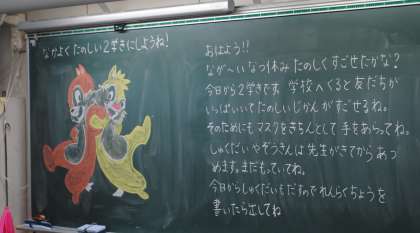 なかよく たのしい2学きにしようね!
おはよう!!
なが〜いなつ休み たのしく すごせたかな?
今日から2学きです。学校へくると友だちが
いっぱいいて たのしいじかんがすごせるね。
そのためにも マスクをきちんとして 手をあらってね。
しゅくだいやぞうきんは 先生がきてからあつ
めます。まだもっていてね。
今日からしゅくだいもだすので れんらくちょうを
書いたら出してね